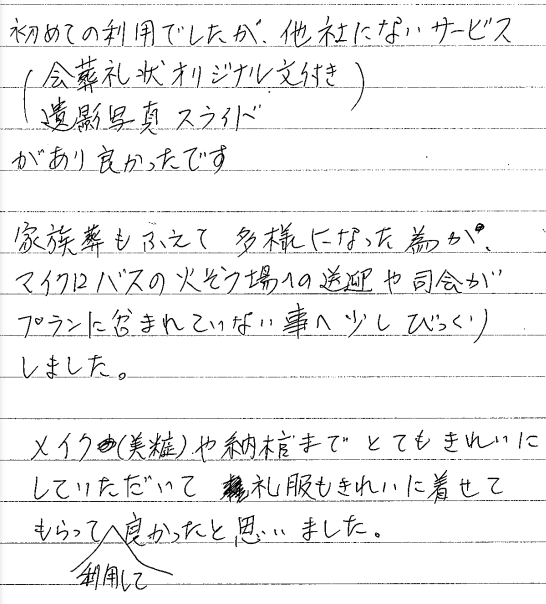 初めての利用でしたが、他社にないサービス
(会葬礼状オリジナル文付き
遺影写真スライド)
があり良かったです
家族葬もふえて多様になった為か、
マイクロバスの火そう場への送迎や司会が
プランに含まれていない事へ少しびっくり
しました。
メイク(美粧)や納棺までとてもきれいに
していただいて 礼服もきれいに着せて
もらって利用して良かったと思いました。